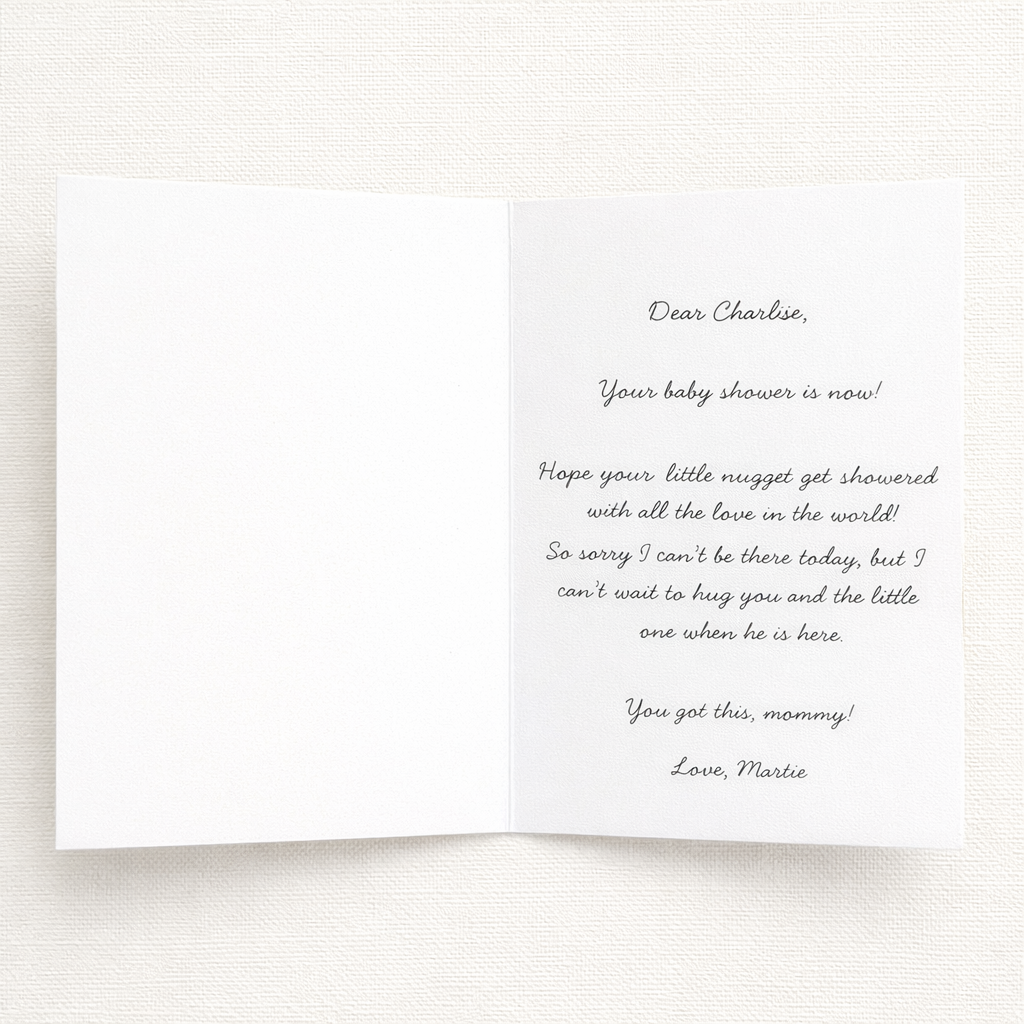 Dear Charlise,
Your baby shower is now!
Hope your little nugget get showered
with all the love in the world!
So sorry I can't be there today, but I
can't wait to hug you and the little
one when he is here.
You got this, mommy!
Love, Martie